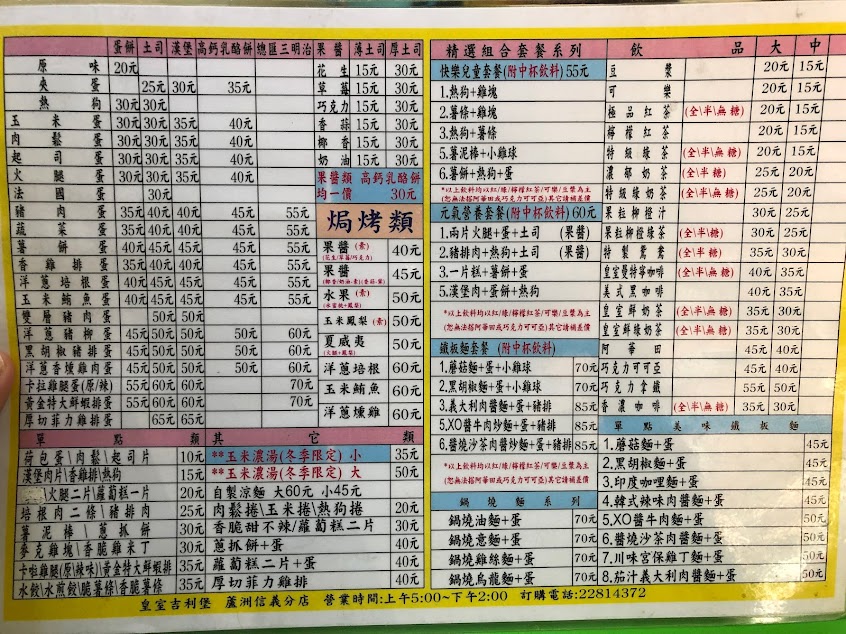 蛋餅 土司 漢堡 高鈣乳酪餅 總匯三明治
原味 20元
夾蛋 25元 30元 35元
熱狗蛋 30元 30元
玉米蛋 30元 30元 35元 40元
肉鬆蛋 30元 30元 35元 40元
起司蛋 30元 30元 35元 40元
火腿蛋 30元 30元 35元 40元
法國蛋 30元
豬肉蛋 35元 40元 40元 45元 55元
蔬菜蛋 35元 40元 40元 45元 55元
薯餅蛋 40元 45元 45元 45元 55元
香雞排蛋 35元 40元 40元 45元 55元
洋蔥培根蛋 40元 45元 45元 45元 55元
玉米鮪魚蛋 40元 45元 45元 45元 55元
雙層豬肉蛋 50元 50元
洋蔥豬柳蛋 45元 50元 50元 50元 60元
黑胡椒豬排蛋 45元 50元 50元 50元 60元
洋蔥香燻雞肉蛋 45元 50元 50元 50元 60元
卡拉雞腿蛋(原/辣) 55元 60元 60元 70元
黃金特大鮮蝦排蛋 55元 60元 60元 70元
厚切菲力雞排蛋 65元 65元
果醬 薄土司 厚土司
花生 15元 30元
草莓 15元 30元
巧克力 15元 30元
香蒜 15元 30元
椰香 15元 30元
奶油 15元 30元
果醬類 高鈣乳酪餅
均一價 30元
焗烤類
果醬(素) 40元
(花生/草莓/巧克力)
果醬 45元
水果(素) 50元
(水蜜桃+鳳梨)
玉米鳳梨(素) 50元
夏威夷 50元
(火腿+鳳梨)
洋蔥培根 60元
玉米鮪魚 60元
洋蔥燻雞 60元
單點類
荷包蛋\肉鬆\起司片 10元
漢堡肉片\香雞排\熱狗 15元
\火腿二片\蘿蔔糕一片 20元
培根肉二條\豬排肉 25元
薯泥棒\蔥抓餅 30元
麥克雞塊\香脆雞米丁 30元
卡啦雞腿(原\辣味)\黃金特大鮮蝦排 35元
水餃\水煎餃\脆薯條\香脆薯條 35元
其它類
**玉米濃湯(冬季限定) 小 35元
**玉米濃湯(冬季限定) 大 50元
自製涼麵 大60元 小45元
肉鬆捲\玉米捲\熱狗捲 20元
香脆甜不辣/蘿蔔糕二片 30元
蔥抓餅+蛋 40元
蘿蔔糕二片+蛋 40元
厚切菲力雞排 40元
精選組合套餐系列
快樂兒童套餐(附中杯飲料)55元
1.熱狗+雞塊
2.薯條+雞塊
3.熱狗+薯條
5.薯泥棒+小雞球
6.薯餅+熱狗
*以上飲料均以紅/綠/檸檬紅茶/可樂/豆漿為主
(恕無法搭阿華田或巧克力可可亞)其它請補差價
元氣營養套餐(附中杯飲料)60元
1.兩片火腿+蛋+土司 (果醬)
2.豬排肉+熱狗+土司 (果醬)
3.一片糕+薯餅+蛋
5.漢堡肉+蛋餅+熱狗
*以上飲料均以紅/綠/檸檬紅茶/可樂/豆漿為主
(恕無法搭阿華田或巧克力可可亞)其它請補差價
鐵板麵套餐 (附中杯飲料)
1.蘑菇麵+蛋+小雞球 70元
2.黑胡椒麵+蛋+小雞球 70元
3.義大利肉醬麵+蛋+豬排 85元
5.XO醬牛肉炒麵+蛋+豬排 85元
6.醬燒沙茶肉醬炒麵+蛋+豬排 85元
*以上飲料均以紅/綠/檸檬紅茶/可樂/豆漿為主
(恕無法搭阿華田或巧克力可可亞)其它請補差價
鍋燒麵系列
鍋燒油麵+蛋 70元
鍋燒意麵+蛋 70元
鍋燒雞絲麵+蛋 70元
鍋燒烏龍麵+蛋 70元
飲品 大 中
豆漿 20元 15元
可樂 20元 15元
極品紅茶 (全\半\無糖) 20元 15元
檸檬紅茶 20元 15元
特級綠茶 (全\半\無糖) 20元 15元
濃郁奶茶 (全\半\無糖) 25元 20元
特級綠奶茶 (全\半\無糖) 25元 20元
果粒柳橙汁 30元 25元
果粒柳橙綠茶 (全\半糖) 30元 25元
特製鴛鴦 (全\半糖) 35元 30元
皇室曼特寧咖啡 (全\半\無糖) 40元 35元
美式黑咖啡 40元 35元
皇室鮮奶茶 (全\半\無糖) 35元 30元
皇室鮮綠奶茶 (全\半\無糖) 35元 30元
阿華田 45元 35元
巧克力可可亞 45元 35元
巧克力拿鐵 55元 50元
香濃咖啡 (全\半\無糖) 35元 30元
單點美味鐵板麵
1.蘑菇麵+蛋 45元
2.黑胡椒麵+蛋 45元
3.印度咖哩麵+蛋 45元
4.韓式辣味肉醬麵+蛋 45元
5.XO醬牛肉麵+蛋 50元
6.醬燒沙茶肉醬麵+蛋 50元
7.川味宮保雞丁麵+蛋 50元
8.茄汁義大利肉醬麵+蛋 50元
皇室吉利堡 蘆洲信義分店 營業時間:上午5:00~下午2:00 訂購電話:22814372